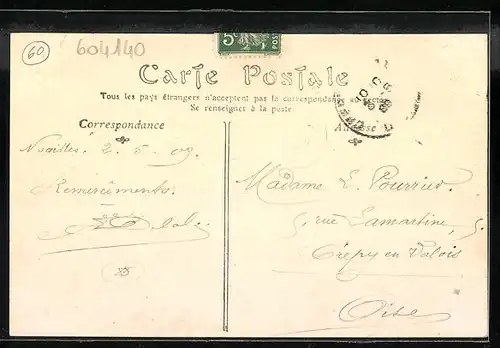 60
604140
5
Carte Postale
Tous les pays étrangers n'acceptent pas la correspondance au recto
Se renseigner à la poste
Correspondance
Adresse
Noailles 2-5-09.
Remerciements.
Madame E. Pourrier.
5, rue Lamartine, 5.
Crépy en Valois
Oise